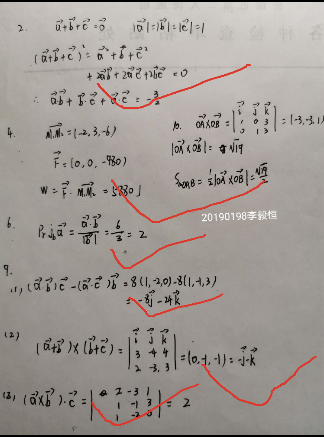 2. a⃗+b⃗+c⃗=0⃗ |a⃗|=|b⃗|=|c⃗|=1
(a⃗+b⃗+c⃗)²=a⃗²+b⃗²+c⃗²
+2a⃗b⃗+2a⃗c⃗+2b⃗c⃗=0
∴ a⃗b⃗+b⃗·c⃗+a⃗·c⃗=-3/2
4. M₁M₂=(-2,3,-6)
F⃗=(0,0,-980)
W=F⃗·M₁M₂=5880J
10. OA×OB=|i⃗ j⃗ k⃗; 1 0 3; 0 1 3|=(-3,-3,1)
|OA×OB|=√19
S△OAB=½|OA×OB|=√19/2
20190198李毅恒
6. Prj_b a⃗=a⃗·b⃗/|b⃗|=6/3=2
9.
(1) (a⃗·b⃗)c⃗-(a⃗·c⃗)b⃗=8(1,-2,0)-8(1,-1,3)
=-8j⃗-24k⃗
(2) (a⃗+b⃗)×(b⃗+c⃗)=|i⃗ j⃗ k⃗; 3 -4 4; 2 -3 3|=(0,-1,-1)=-j⃗-k⃗
(3) (a⃗×b⃗)·c⃗=|2 -3 1; 1 -1 3; 1 -2 0|=2